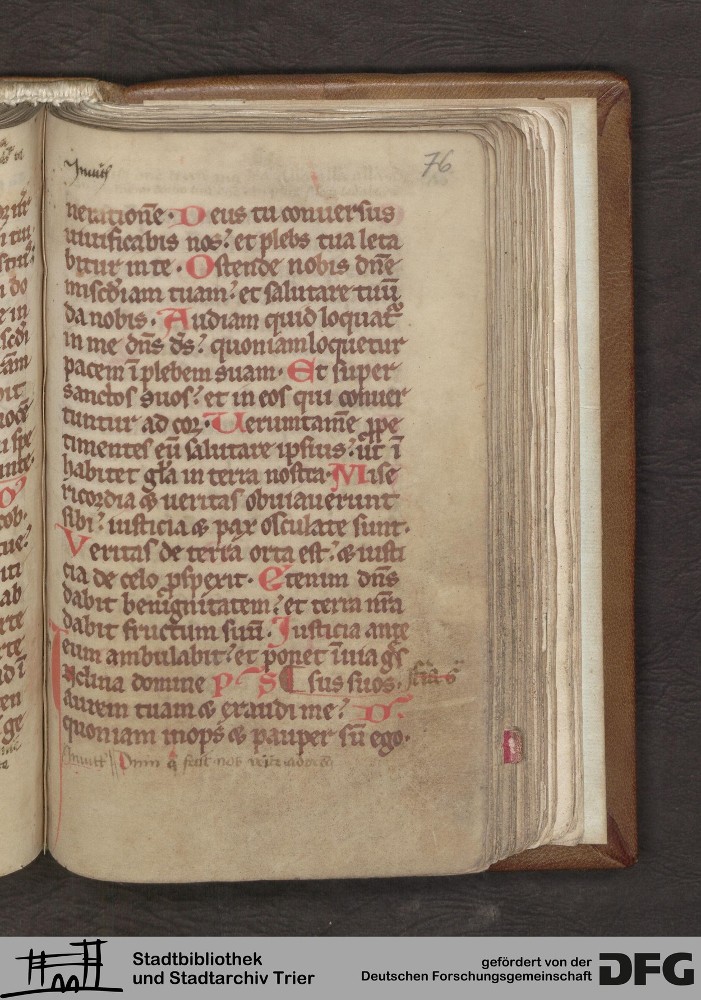 76
neratione. Deus tu conuersus
uiuificabis nos? et plebs tua leta
bitur in te. Ostende nobis dn̄e
miscd̄iam tuam? et salutare tuū
da nobis. Audiam quid loquat᷑
in me dn̄s ds̄? quoniam loquetur
pacem ī plebem suam. Et super
sanctos suos? et in eos qui conuer
tuntur ad cor. Uerumtam̄e ꝓpe
timentes eū salutare ipsius? ut ī
habitet gl̄a in terra nostra. Mise
ricordia & ueritas obuiauerunt
sibi? iusticia & pax osculate sunt.
Veritas de terra orta est? & iusti
cia de celo ꝓspexit. Etenim dn̄s
dabit benignitatem? et terra nr̄a
dabit fructum suū. Iusticia ante
eum ambulabit? et ponet ī uia ḡs
Inclina domine PS sus suos.
aurem tuam & exaudi me? D.
quoniam inops & pauper sū ego.
Stadtbibliothek
und Stadtarchiv Trier
gefördert von der
Deutschen Forschungsgemeinschaft
DFG